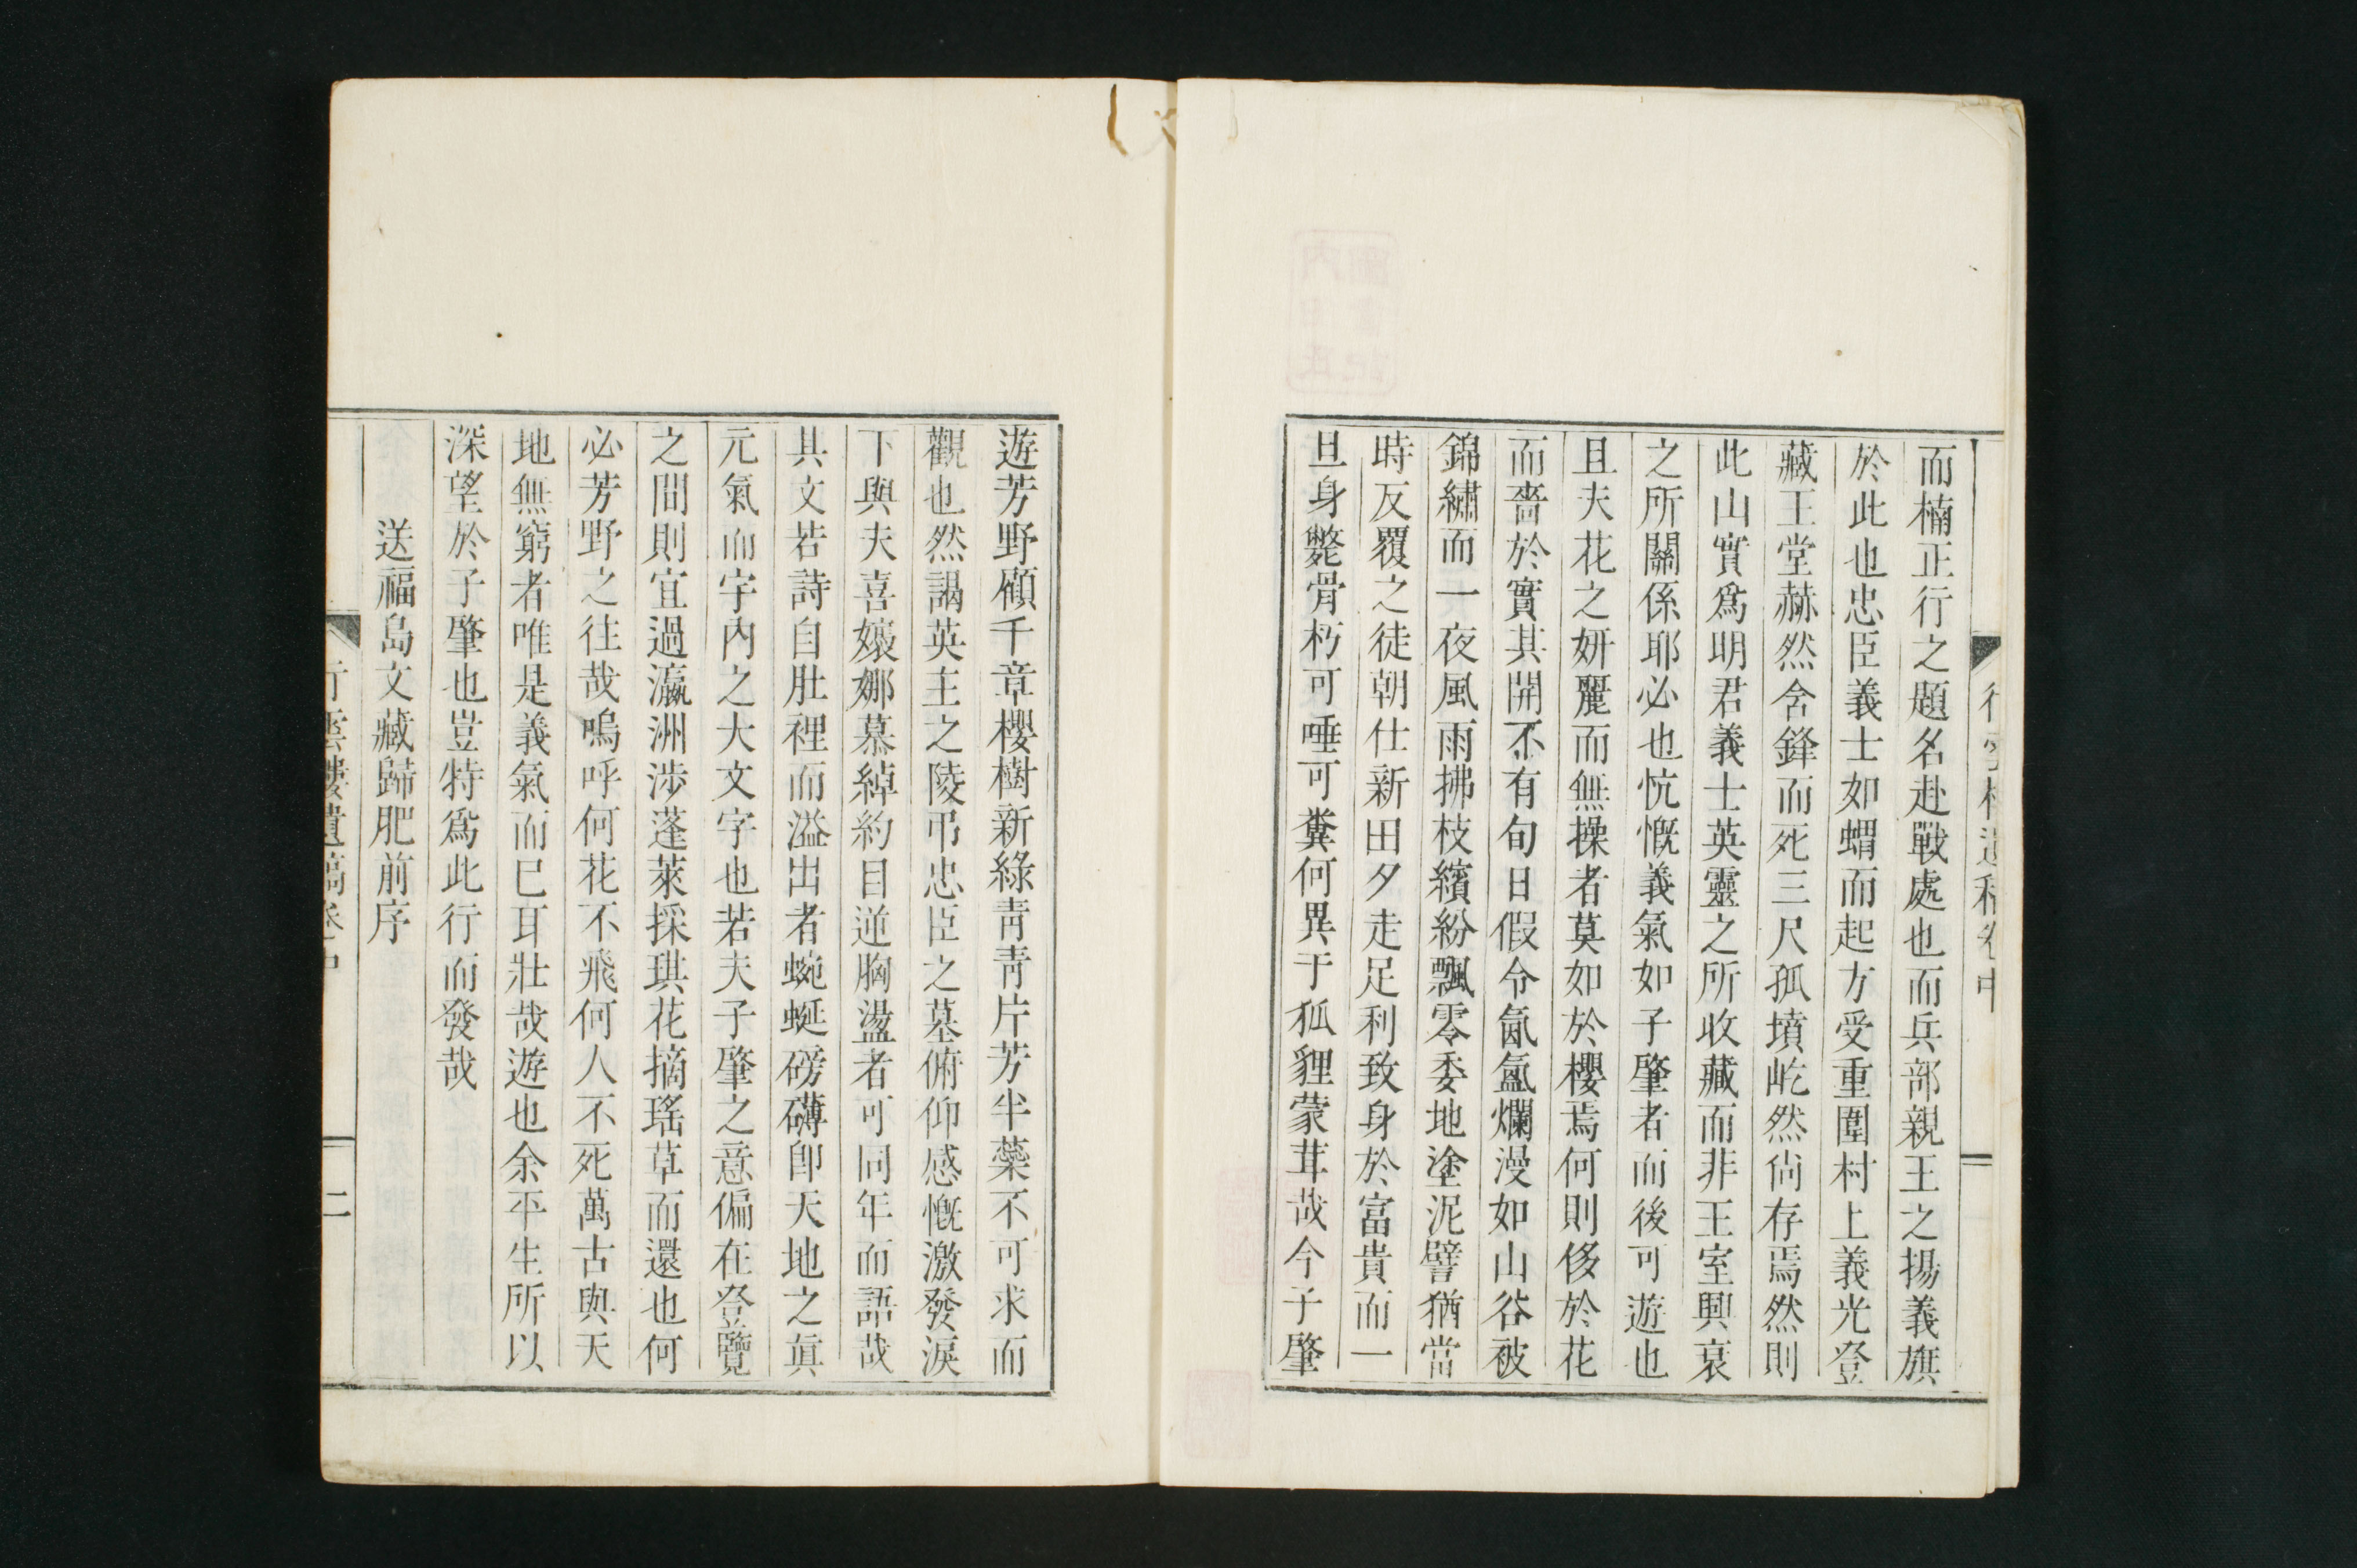 而楠正行之題名赴戰處也而兵部親王之揚義旗
於此也忠臣義士如蝟而起方受重圍村上義光登
藏王堂赫然舍鋒而死三尺孤墳屹然尙存焉然則
此山實爲明君義士英靈之所收藏而非王室興衰
之所關係耶必也忼慨義氣如子肇者而後可遊也
且夫花之妍麗而無操者莫如於櫻焉何則侈於花
而嗇於實其開不有旬日假令氤氳爛漫如山谷被
錦繡而一夜風雨拂枝繽紛飄零委地塗泥譬猶當
時反覆之徒朝仕新田夕走足利致身於富貴而一
旦身斃骨朽可唾可糞何異于狐貍蒙茸哉今子肇
遊芳野顧千章櫻樹新綠靑靑片芳半蘂不可求而
觀也然謁英主之陵弔忠臣之墓俯仰感慨激發淚
下與夫喜嬢娜慕綽約目逆胸盪者可同年而語哉
其文若詩自肚裡而溢出者蜿蜒磅礴卽天地之眞
元氣而宇內之大文字也若夫子肇之意偏在登覽
之間則宜過瀛洲涉蓬萊採琪花摘瑤草而還也何
必芳野之往哉嗚呼何花不飛何人不死萬古與天
地無窮者唯是義氣而已耳壯哉遊也余平生所以
深望於子肇也豈特爲此行而發哉
送福島文藏歸肥前序
行雲樓遺稿卷中
二